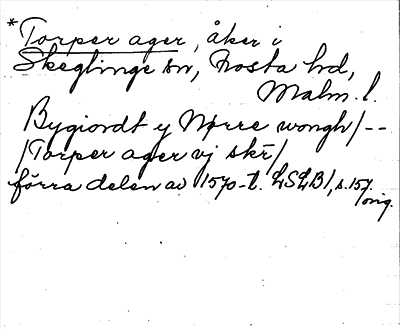 *Torper ager, åker i
Skeglinge sn, Frosta hd,
Malm. l.
Bygiordt y Nørre wongh/--
/Torper ager vj skr/
förra delen av 1570-t. LSLB1, s. 157.
orig.